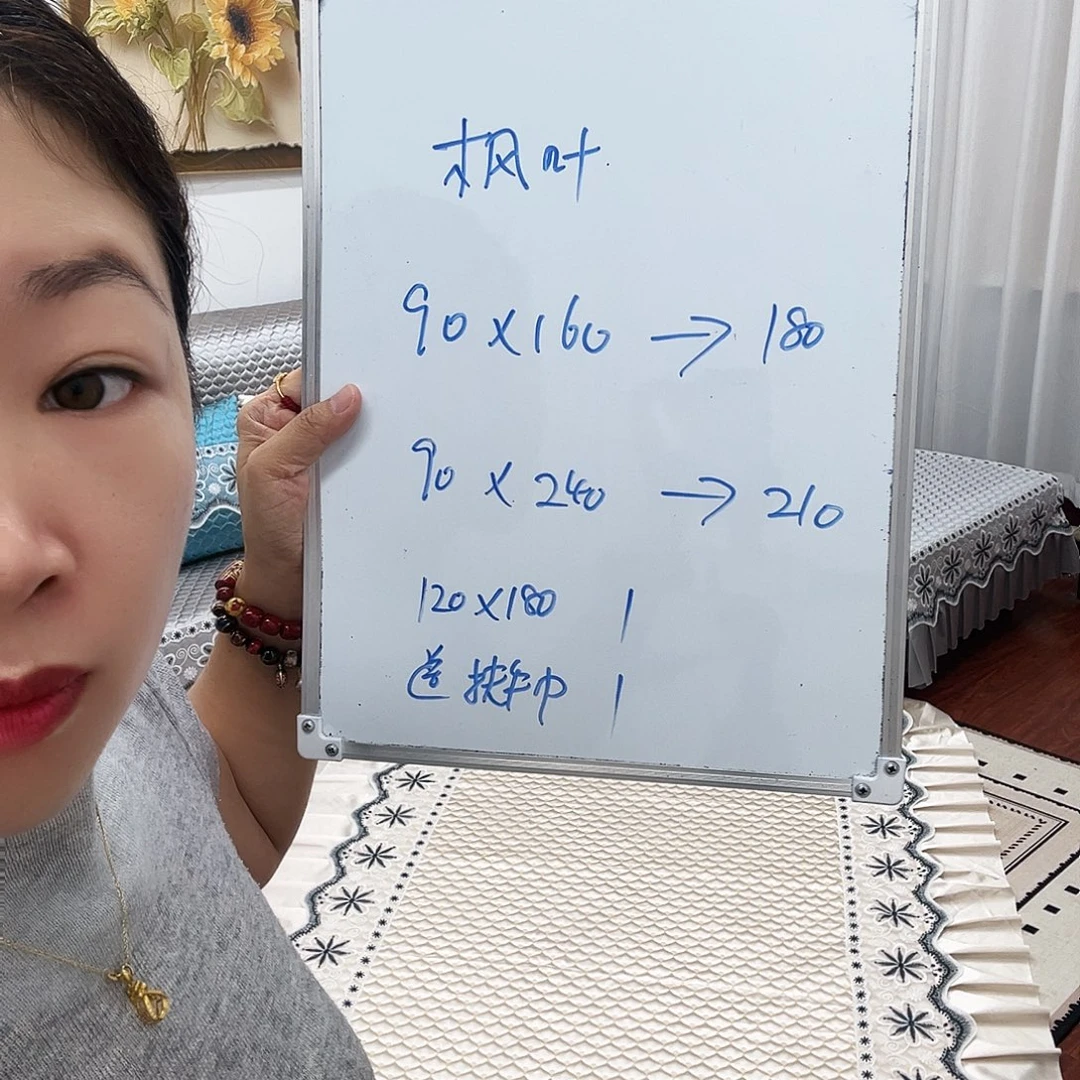 枫叶
90×160 → 180
90×240 → 210
120×180 1
送扶手巾 1